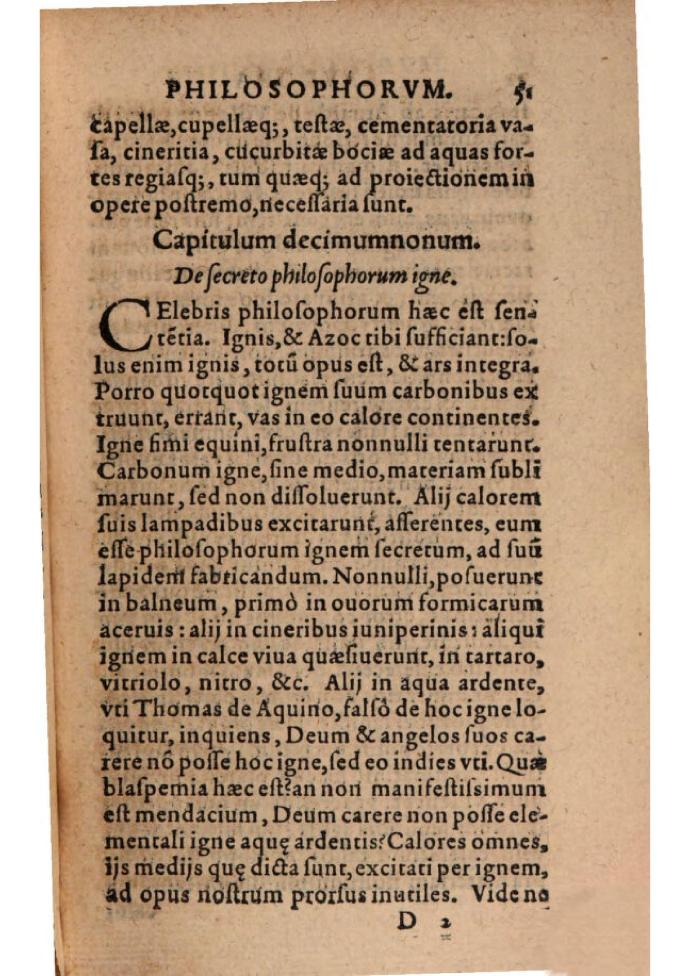 PHILOSOPHORVM. 51
capellæ, cupellæq;, teſtæ, cementatoria va-
ſa, cineritia, cucurbitæ bociæ ad aquas for-
tes regiaſq;, tum quæq; ad proiectionem in
opere poſtremo, neceſſaria ſunt.
Capitulum decimumnonum.
De ſecreto philoſophorum igne.
CElebris philoſophorum hæc eſt ſen-
tẽtia. Ignis, & Azoc tibi ſufficiant: ſo-
lus enim ignis, totũ opus eſt, & ars integra.
Porro quotquot ignem ſuum carbonibus ex
truunt, errant, vas in eo calore continentes.
Igne fimi equini, fruſtra nonnulli tentarunt.
Carbonum igne, ſine medio, materiam ſubli
marunt, ſed non diſſoluerunt. Alij calorem
ſuis lampadibus excitarunt, aſſerentes, eum
eſſe philoſophorum ignem ſecretum, ad ſuũ
lapidem fabricandum. Nonnulli, poſuerunt
in balneum, primò in ouorum formicarum
aceruis: alij in cineribus iuniperinis: aliqui
ignem in calce viua quæſiuerunt, in tartaro,
vitriolo, nitro, &c. Alij in aqua ardente,
vti Thomas de Aquino, falsò de hoc igne lo-
quitur, inquiens, Deum & angelos ſuos ca-
rere nõ poſſe hoc igne, ſed eo indies vti. Quæ
blaſpemia hæc eſt? an non manifeſtiſsimum
eſt mendacium, Deum carere non poſſe ele-
mentali igne aquę ardentis? Calores omnes,
ijs medijs quę dicta ſunt, excitati per ignem,
ad opus noſtrum prorſus inutiles. Vide ne
D 2